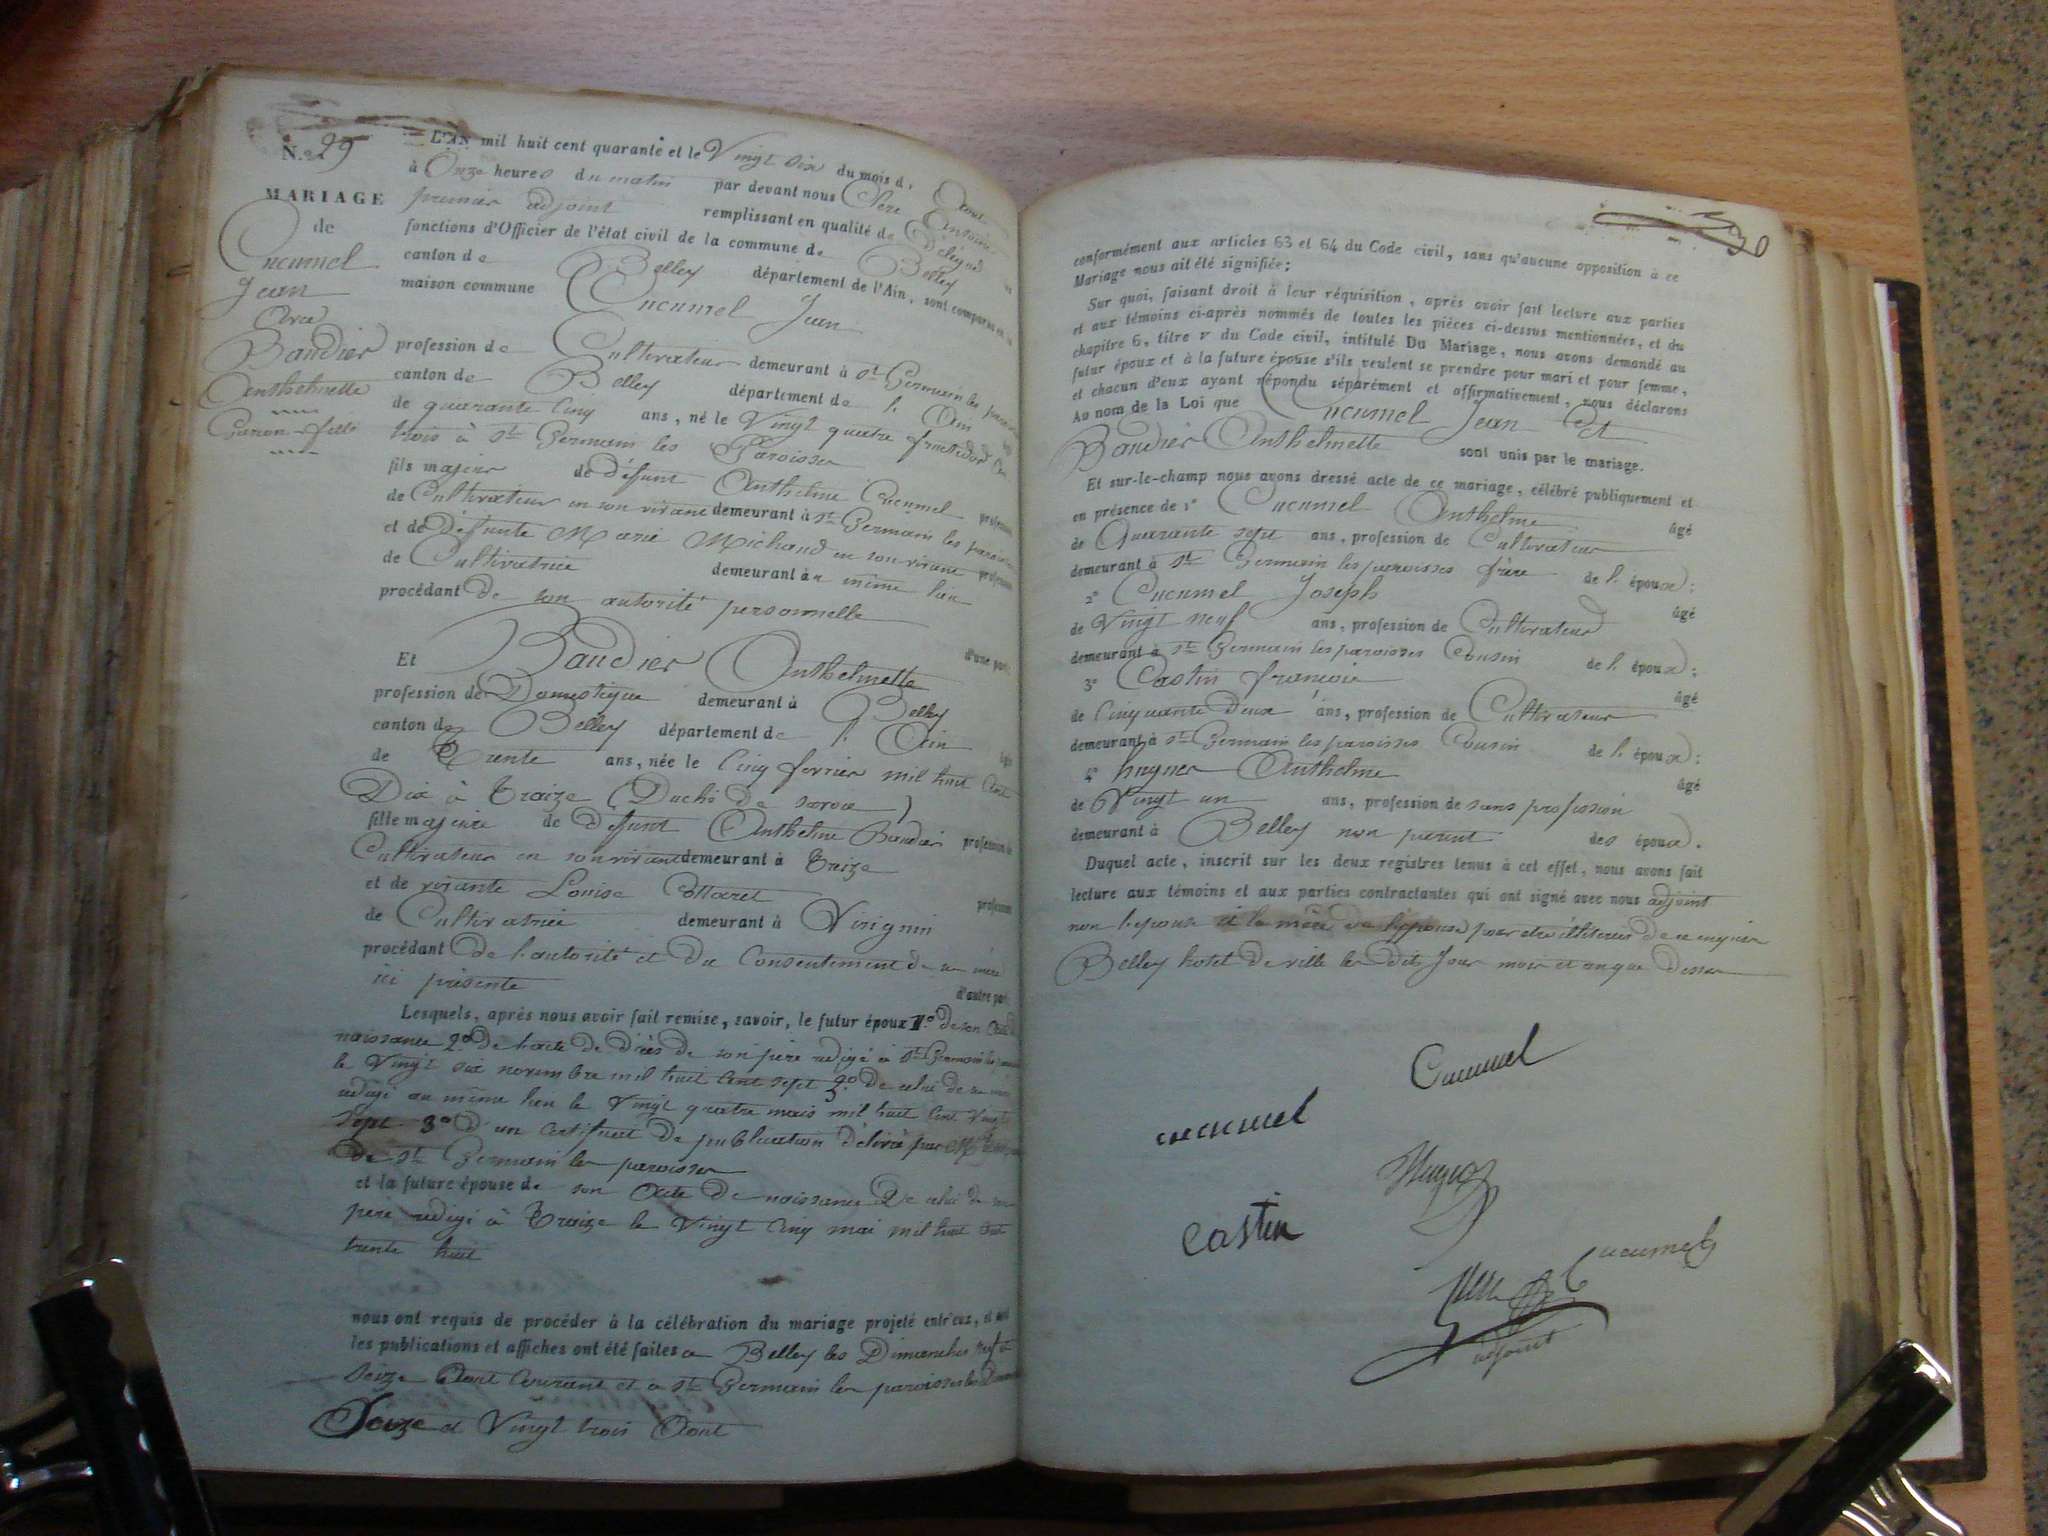 N.º 29
MARIAGE
de
Cucumel
Jean
Avec
Baudier
Anthelmette
Garçon - fille
L'AN mil huit cent quarante et le Vingt six du mois d' Aout
à Onze heures du matin par devant nous Père Antoine
premier adjoint remplissant en qualité de Délégué
fonctions d'Officier de l'état civil de la commune de Belley
canton de Belley département de l'Ain, sont comparus
maison commune Cucumel Jean
profession de Cultivateur demeurant à St Germain les paroisses
canton de Belley département de l' Ain
de quarante cinq ans, né le Vingt quatre fructidor l'an
trois à St Germain les Paroisses
fils majeur de défunt Anthelme Cucumel profession
de Cultivateur en son vivant demeurant à St Germain les paroisses
et de Défunte Marie Michaud en son vivant profession
de Cultivatrice demeurant au même lieu
procédant de son autorité personnelle
d'une part
Et Baudier Anthelmette
profession de Domestique demeurant à Belley
canton de Belley département de l' Ain
de Trente ans, née le Cinq fevrier mil huit Cent
Dix à Traize (Duché de savoie)
fille majeure de défunt Anthelme Baudier profession de
Cultivateur en son vivant demeurant à Traize
et de vivante Louise profession
de Cultivatrice demeurant à Virignin
procédant de l'autorité et du Consentement de sa mère
ici présente d'autre part
Lesquels, après nous avoir fait remise, savoir, le futur époux 1º de son acte de
naissance 2º de l'acte de Décès de son père redigé à St Germain les paroisses
le Vingt six novembre mil huit Cent sept 3º de celui de sa mère
redigé au même lieu le Vingt quatre mars mil huit Cent Vingt
Sept 3º d'un Certificat de publication délivré par Mr
de St Germain les paroisses
et la future épouse de son Acte de naissance De celui de son
père redigé à Traize le Vingt Cinq mai mil huit Cent
trente huit
nous ont requis de procéder à la célébration du mariage projeté entr'eux, et dont
les publications et affiches ont été faites à Belley les Dimanches neuf et
Seize Aout Courant et à St Germain les paroisses les Dimanches
Seize et Vingt trois Aout
30
conformément aux articles 63 et 64 du Code civil, sans qu'aucune opposition à ce
Mariage nous ait été signifiée;
Sur quoi, faisant droit à leur réquisition, après avoir fait lecture aux parties
et aux témoins ci-après nommés de toutes les pièces ci-dessus mentionnées, et du
chapitre 6, titre v du Code civil, intitulé Du Mariage, nous avons demandé au
futur époux et à la future épouse s'ils veulent se prendre pour mari et pour femme,
et chacun d'eux ayant répondu séparément et affirmativement, nous déclarons
Au nom de la Loi que Cucumel Jean Et
Baudier Anthelmette sont unis par le mariage.
Et sur-le-champ nous avons dressé acte de ce mariage, célébré publiquement et
en présence de 1º Cucumel Anthelme âgé
de Quarante sept ans, profession de Cultivateur
demeurant à St Germain les paroisses frère de l' époux:
2º Cucumel Joseph âgé
de Vingt neuf ans, profession de Cultivateur
demeurant à St Germain les paroisses Cousin de l' époux:
3º Castin françois âgé
de Cinquante deux ans, profession de Cultivateur
demeurant à St Germain les paroisses Cousin de l' époux:
4º hugues Anthelme âgé
de Vingt un ans, profession de sans profession
demeurant à Belley non parent des époux.
Duquel acte, inscrit sur les deux registres tenus à cet effet, nous avons fait
lecture aux témoins et aux parties contractantes qui ont signé avec nous adjoint
non l'epouse et la mère de l'épouse pour être illitérées de ce enquises
Belley hotel de ville les dits Jour mois et an que Dessus
Cucumel
cucumel
castin
Cucumel
adjoint